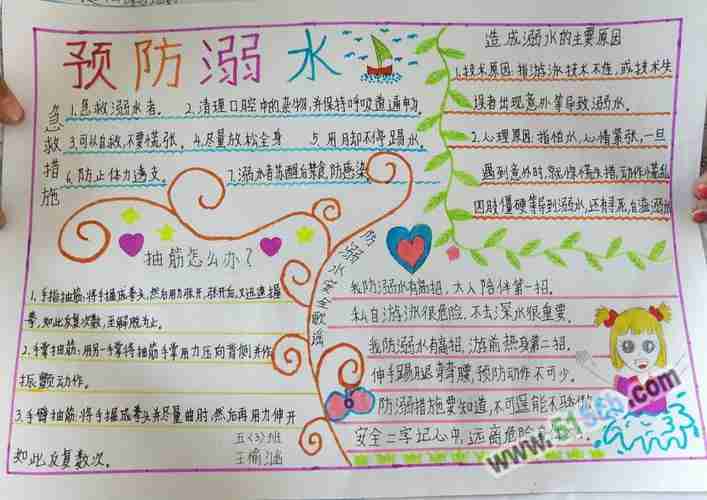 预防溺水
急救措施
1.急救溺水者。 2.清理口腔中的杂物,并保持呼吸道通畅
3.可以自救,不要慌张。 4.尽量放松全身 5.用月却不停踢水。
6.防止体力透支。 7.溺水者苏醒后禁食,防感染。
造成溺水的主要原因
1.技术原因:指游泳技术不佳,或技术失
误者出现意外等导致溺水。
2.心理原因:指怕水,心情紧张,一旦
遇到意外时,就惊慌失措,动作慌乱
四肢僵硬等导到溺水,还有寻死,
抽筋怎么办?
1.手指抽筋:将手握成拳头,然后用力张开,张开后,又迅速握
拳,如此反复数次,至解脱为止。
2.手掌抽筋:用另一手掌将抽筋手掌用力压向背侧并作
振颤动作。
3.手臂抽筋:将手握成拳头并尽量曲肘,然后再用力伸开
如此反复数次。
五(3)班
王榆涵
防溺水安全歌谣
我防溺水有高招,大人陪伴第一招。
私自游泳很危险,不去深水很重要。
我防溺水有高招,游前热身第二招。
伸手踢腿弯弯腰,预防动作不可少。
防溺措施要知道,不可逞能不
安全二字记心中,远离危险